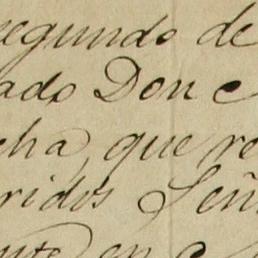 segundo de
ado Don
cha, que re
ridos Señ
en